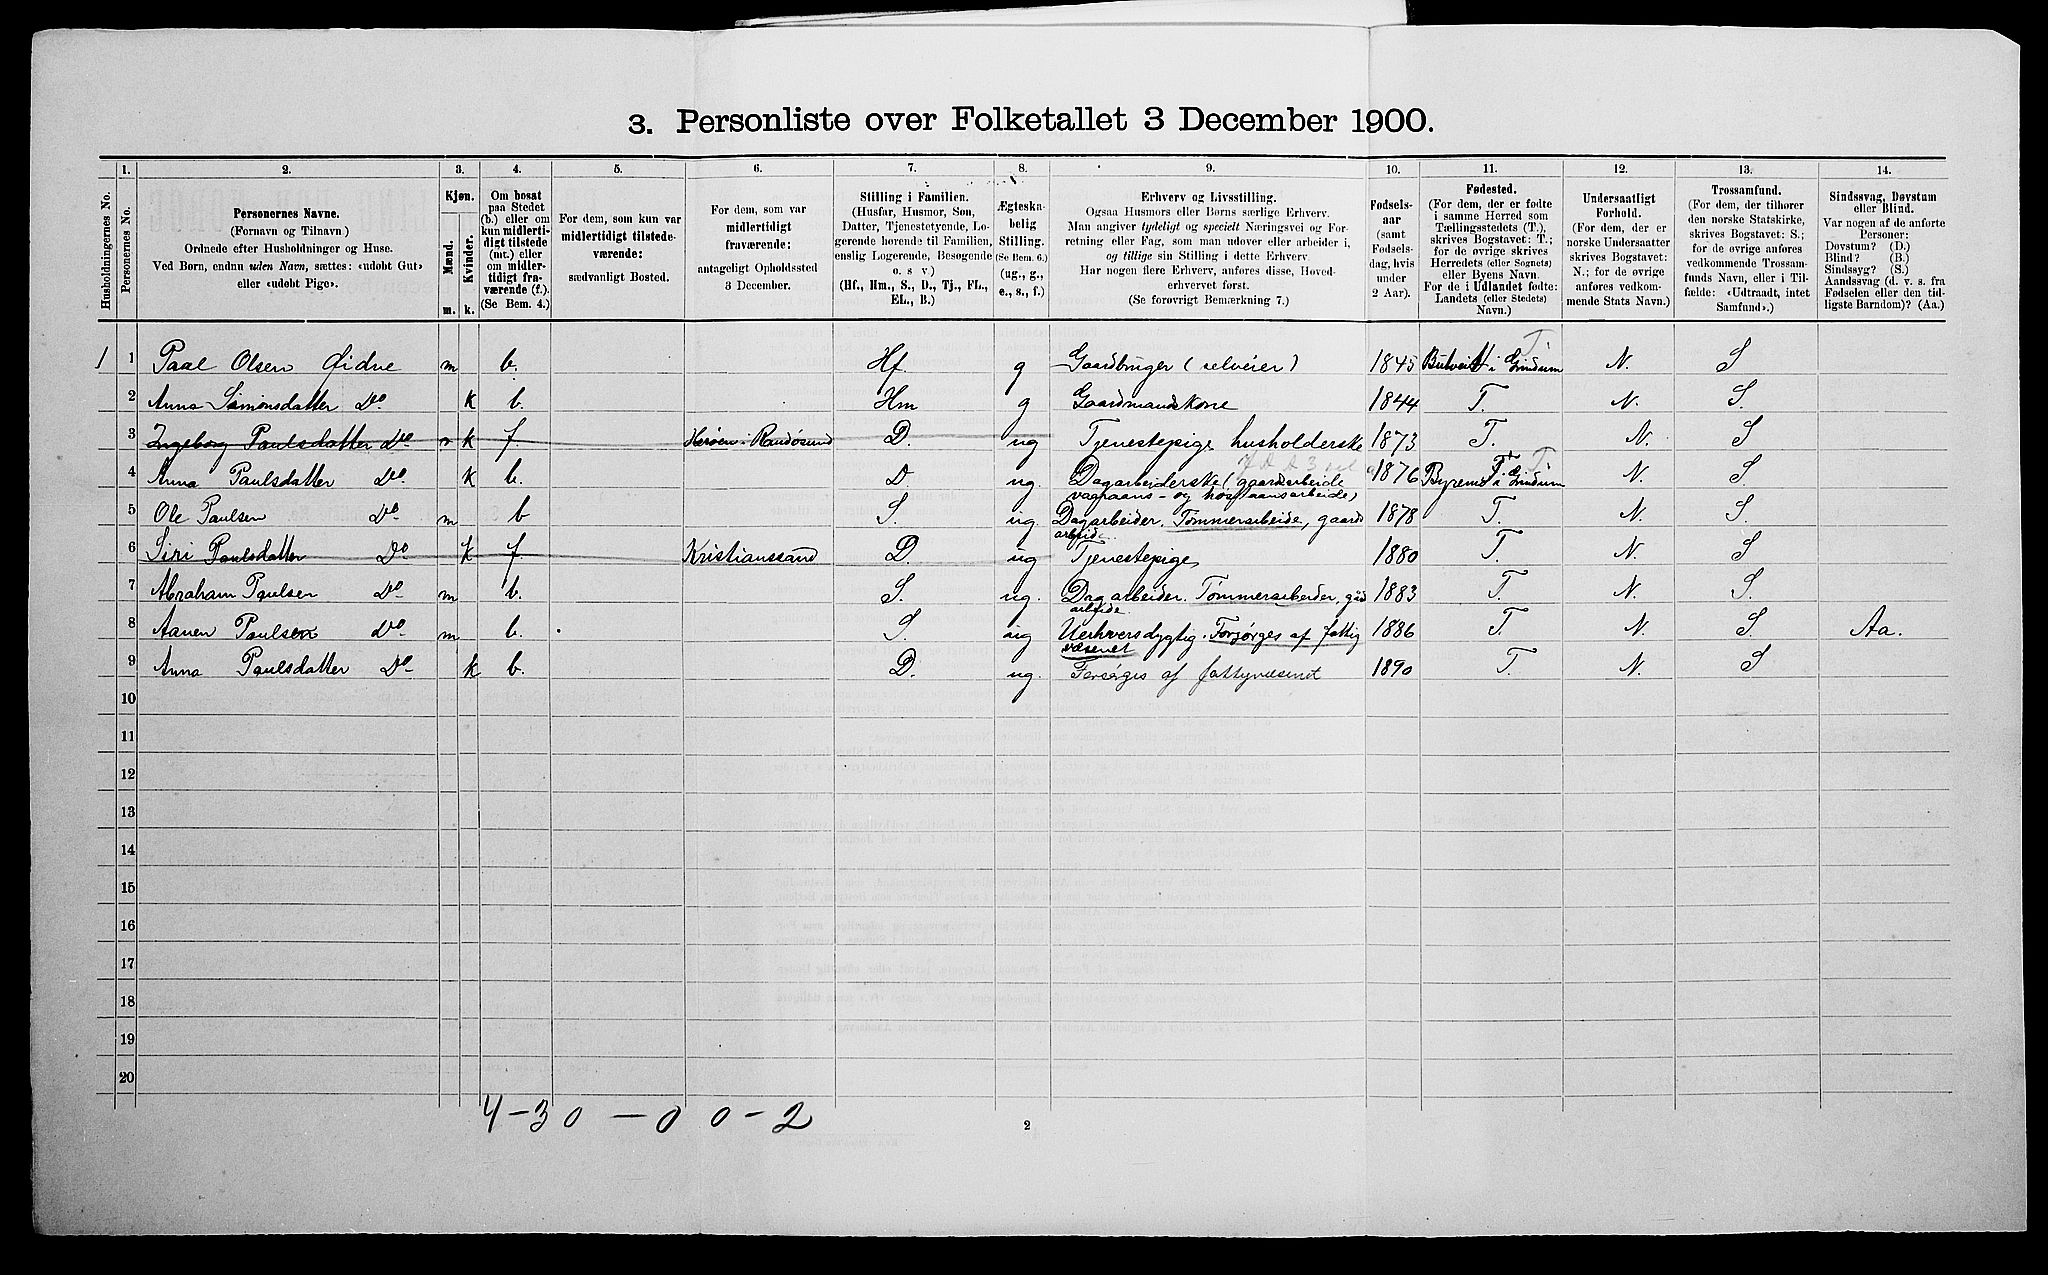 3. Personliste over Folketallet 3 December 1900.
Husholdningernes No.
1.
Personernes No.
2.
Personernes Navne.
(Fornavn og Tilnavn)
Ordnede efter Husholdninger og Huse.
Ved Børn, endnu uden Navn, sættes: «udøbt Gut»
eller «udøbt Pige».
3.
Kjøn.
Mænd.
Kvinder.
m.
k.
4.
Om bosat
paa Stedet
(b.) eller om
kun midlerti-
digt tilstede
(mt.) eller
om midler-
tidigt fra-
værende (f.).
(Se Bem. 4.)
5.
For dem, som kun var
midlertidigt tilstede-
værende:
sædvanligt Bosted.
6.
For dem, som var
midlertidigt
fraværende:
antageligt Opholdssted
3 December.
7.
Stilling i Familien.
(Husfar, Husmor, Søn,
Datter, Tjenestetyende, Lo-
gerende hørende til Familien,
enslig Logerende, Besøgende
o. s. v)
(Hf., Hm., S., D., Tj., FL.,
EL., B.)
8.
Ægteska-
belig
Stilling.
(Se Bem. 6.)
(ug., g.,
e., s., f.)
9.
Erhverv og Livsstilling.
Ogsaa Husmors eller Børns særlige Erhverv.
Man angiver tydeligt og specielt Næringsvei og For-
retning eller Fag, som man udover eller arbeider i,
og tillige sin Stilling i dette Erhverv.
Har nogen flere Erhverv, anføres disse, Hoved-
erhvervet først.
(Se forøvrigt Bemærkning 7.)
10.
Fødsels-
aar
(samt
Fødsels-
dag, hvis
under
2 Aar).
11.
Fødested.
(For dem, der er fødte
i samme Herred som
Tællingsstedets (T.),
skrives Bogstavet: T.;
for de øvrige skrives
Herredets (eller Sognets)
eller Byens Navn.
For de i Udlandet fødte:
Landets (eller Stedets)
Navn.)
12.
Undersaatligt
Forhold.
(For dem, der er
norske Undersaatter
skrives Bogstavet:
N.; for de øvrige
anføres vedkom-
mende Stats Navn.)
13.
Trossamfund.
(For dem, der tilhører
den norske Statskirke,
skrives Bogstavet: S.;
for de øvrige anføres
vedkommende Trossam-
funds Navn, eller i Til-
fælde: «Udtraadt, intet
Samfund».)
14.
Sindssvag, Døvstum
eller Blind.
Var nogen af de anførte
Personer:
Døvstum? (D.)
Blind? (B.)
Sindssyg? (S.)
Aandssvag (d. v. s. fra
Fødselen eller den tid-
ligste Barndom)? (Aa.)
1 1 Paal Olsen Øidne m b. Hf. g Gaardbruger (selveier) 1845 i Grindum T N. S
2 Anna Simonsdatter Do. k b. Hm g Gaardmandskone 1844 T. N. S.
3 Ingeborg Paulsdatter Do k f Herøen i Randøsund D. ug Tjenestepige husholderske 1873 T. N. S
4 Anna Paulsdatter Do. k b. D ug. Dagarbeiderske (gaardsarbeide 1876 i Grindum T N. S
5 Ole Paulsen Do. m b S. ug. Dagarbeider. Tømmerarbeide, gaards
arbeide 1878 T. N. S.
6 Siri Paulsdatter Do k f. Kristianssand D. ug Tjenestepige 1880 T. N. S
7 Abraham Paulsen Do. m b. S. ug. Dagarbeider. Tømmerarbeider,
arbeide. 1883 T. N. S.
8 Aanen Paulsen Do. m b. S. ug Uerhversdygtig. Forsørges af fattig
væsenet 1886 T. N. S. Aa.
9 Anna Paulsdatter Do. k b. D. ug. Forsørges af fattigvæsenet 1890 T. N. S
10
11
12
13
14
15
16
17
18
19
20
4-30-00-2
2